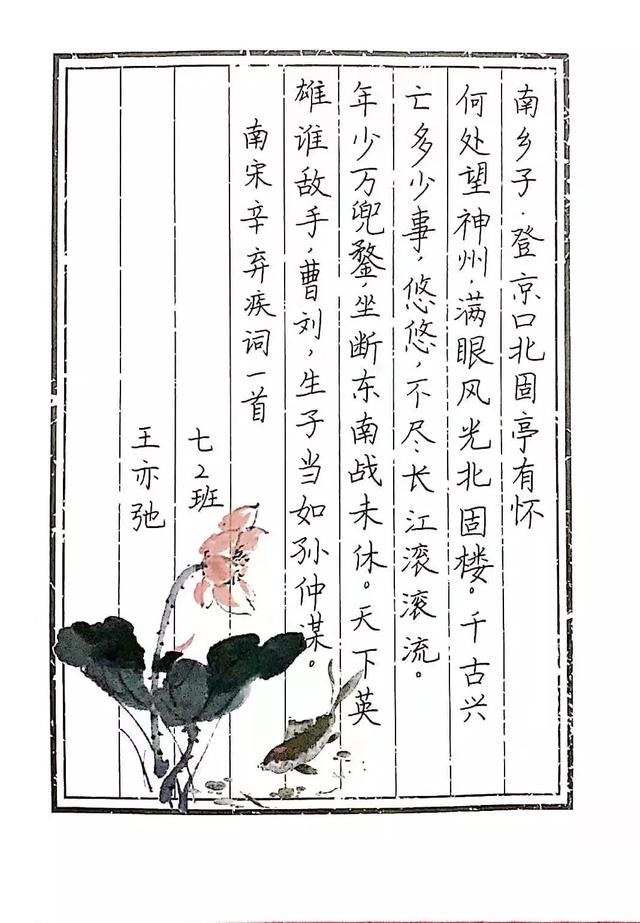 南乡子·登京口北固亭有怀
何处望神州，满眼风光北固楼。千古兴
亡多少事，悠悠，不尽长江滚滚流。
年少万兜鍪，坐断东南战未休。天下英
雄谁敌手，曹刘，生子当如孙仲谋。
南宋辛弃疾词一首
七2班
王亦弛